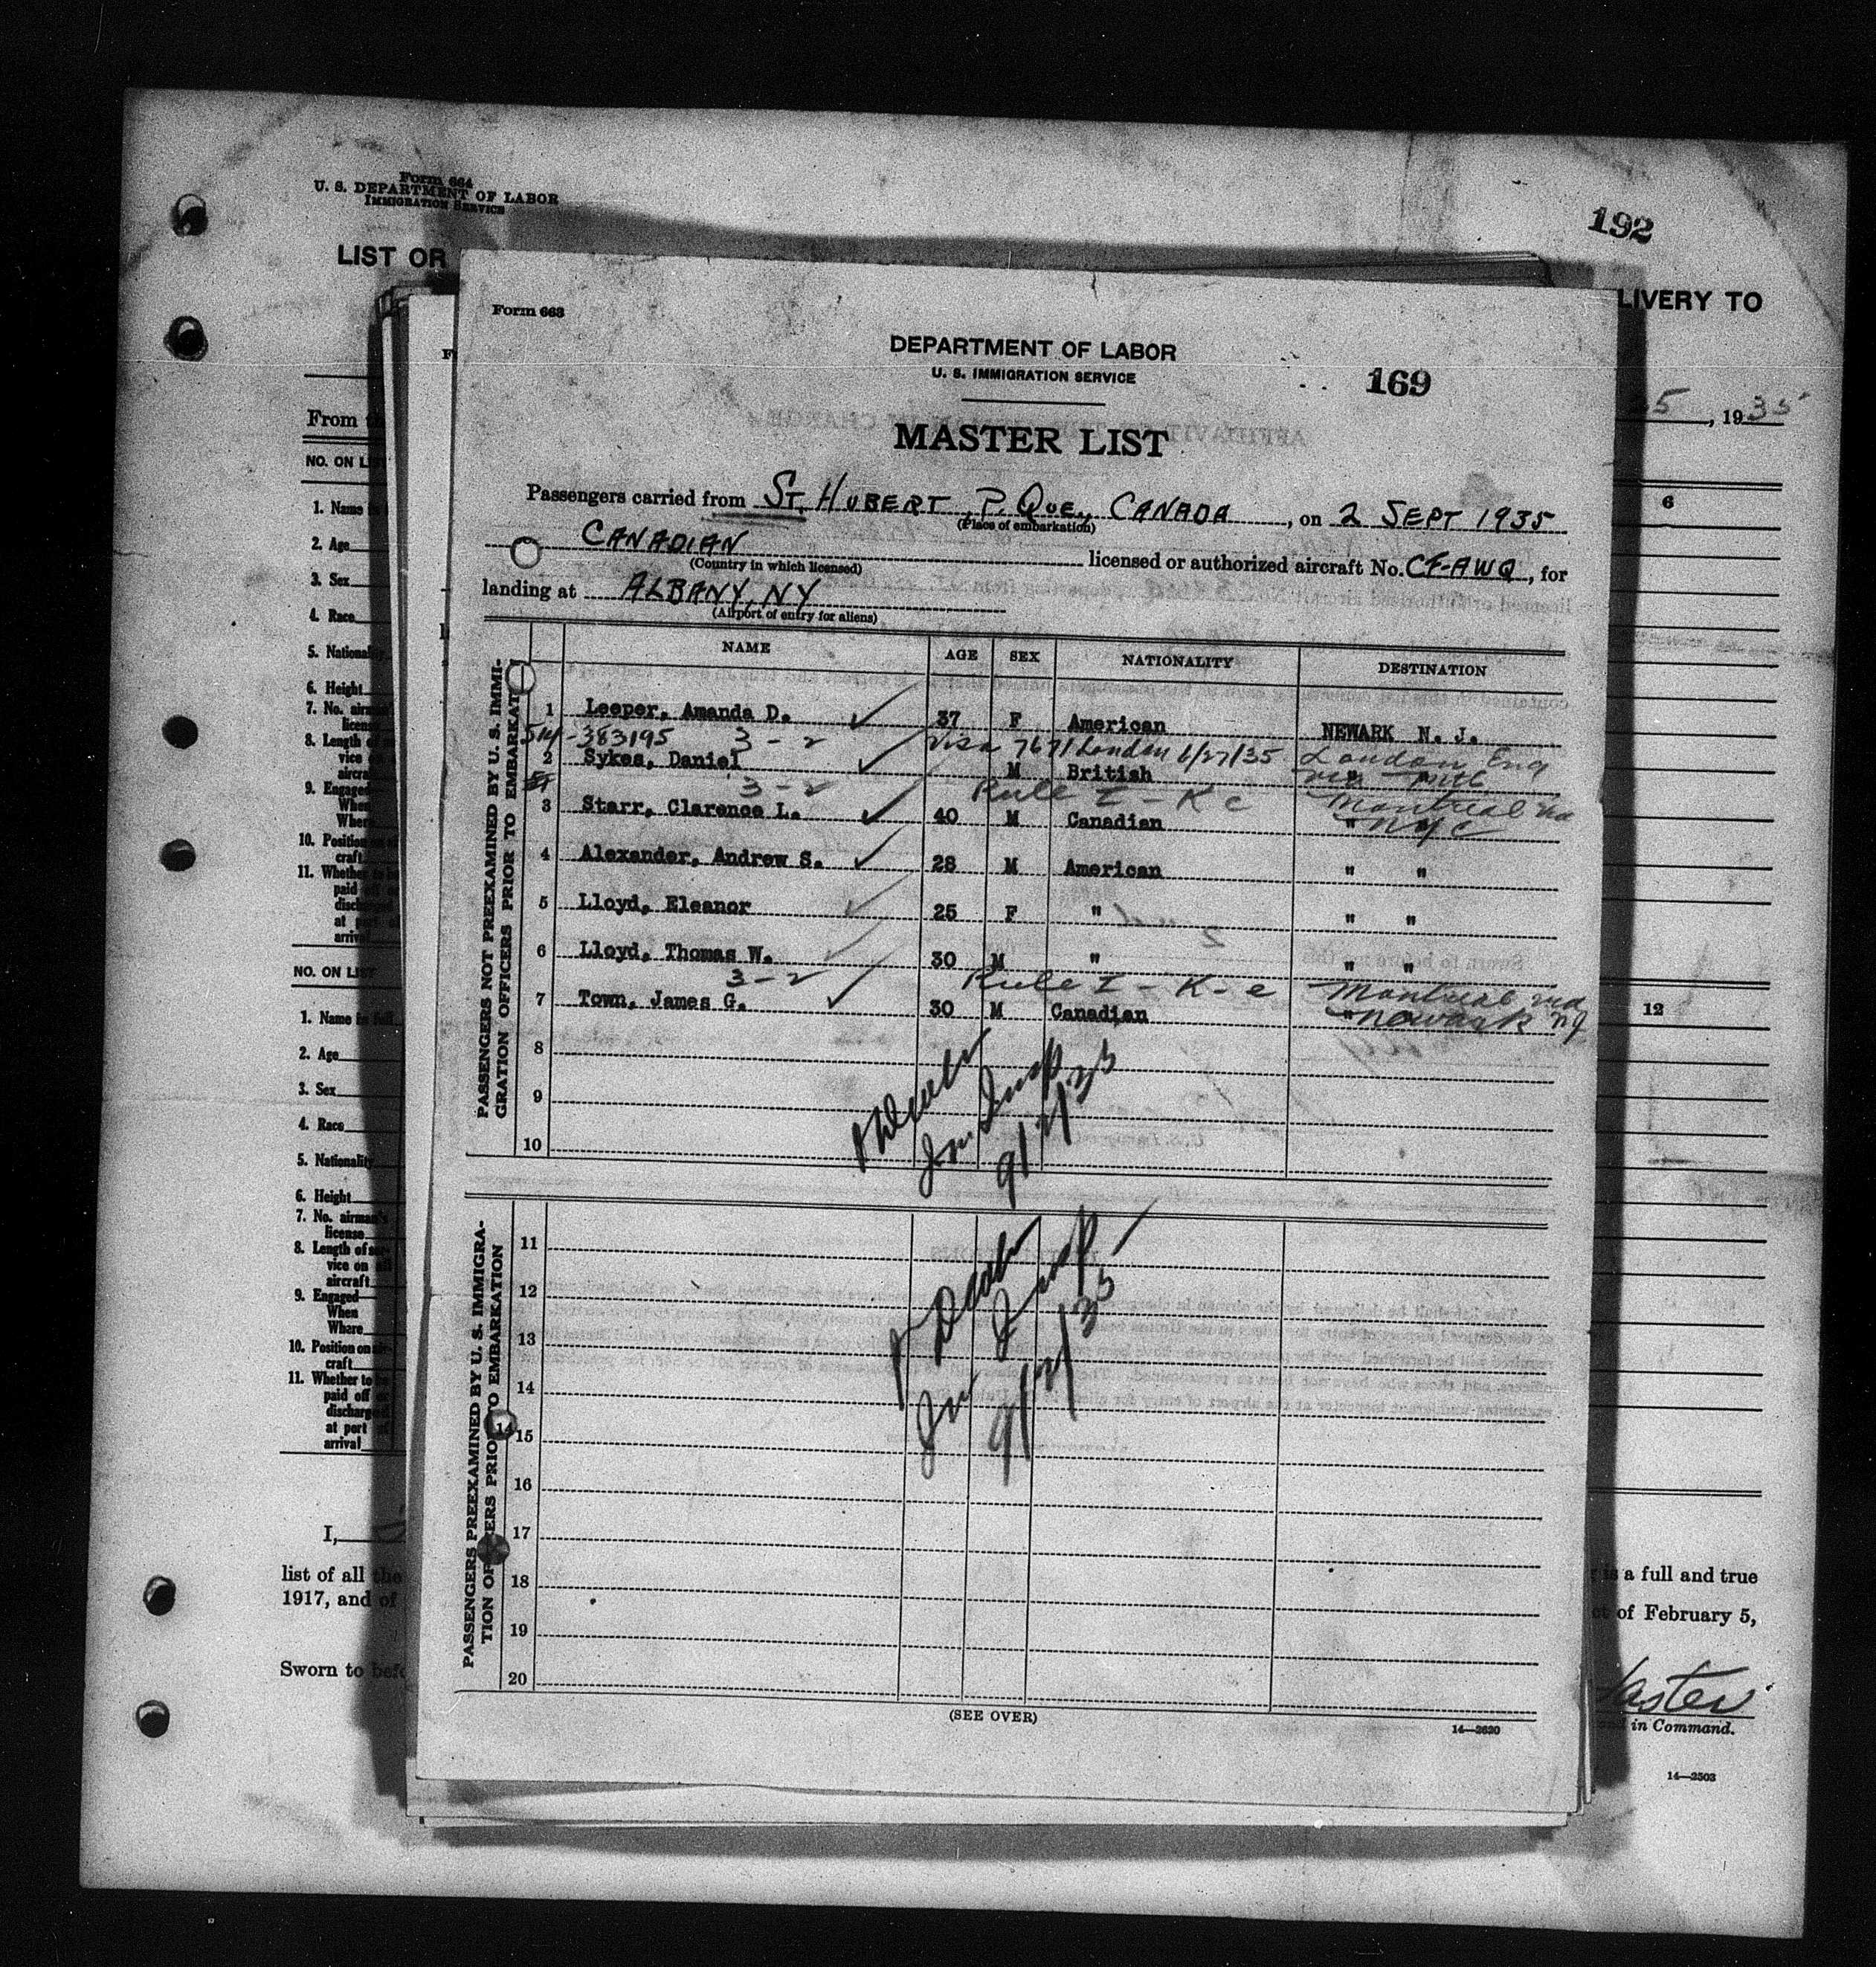 Form 664
U. S. DEPARTMENT OF LABOR
IMMIGRATION SERVICE
192
LIST OR
LIVERY TO
Form 663
DEPARTMENT OF LABOR
U. S. IMMIGRATION SERVICE
169
MASTER LIST
From
5, 1935
Passengers carried from ST. HUBERT, P. QUE., CANADA, on 2 SEPT 1935
(Place of embarkation)
CANADIAN licensed or authorized aircraft No. CF-AWQ, for
(Country in which licensed)
landing at ALBANY, NY
(Airport of entry for aliens)
NAME AGE SEX NATIONALITY DESTINATION
PASSENGERS NOT PREEXAMINED BY U. S. IMMI-
GRATION OFFICERS PRIOR TO EMBARKAT
1 Leeper, Amanda D. 37 F American NEWARK N. J.
383195 3-2 Visa 7671 London 6/27/35 London Eng
2 Sykes, Daniel M British via Mtl
3-2 Rule I-K c Montreal via
3 Starr, Clarence L. 40 M Canadian " NYC
4 Alexander, Andrew S. 28 M American " "
5 Lloyd, Eleanor 25 F " " "
6 Lloyd, Thomas W. 30 M " " "
3-2 Rule I-K-e Montreal via
7 Town, James G. 30 M Canadian " Newark NJ
8
9
10
Im Insp
9/2/35
PASSENGERS PREEXAMINED BY U. S. IMMIGRA-
TION OFFICERS PRIOR TO EMBARKATION
11
12
13
14
15
16
17
18
19
20
Im Insp
9/2/35
(SEE OVER)
14—2620
NO. ON LIST
1. Name
2. Age
3. Sex
4. Race
5. Nationality
6. Height
7. No. airman's
license
8. Length of ser-
vice on
aircraft
9. Engaged
When
Where
10. Position on air-
craft
11. Whether to be
paid off or
discharged
at port of
arrival
6
NO. ON LIST
1. Name in full
2. Age
3. Sex
4. Race
5. Nationality
6. Height
7. No. airman's
license
8. Length of ser-
vice on
aircraft
9. Engaged
When
Where
10. Position on air-
craft
11. Whether to be
paid off or
discharged
at port of
arrival
12
I,
list of all the
is a full and true
1917, and of
of February 5,
Sworn to before
in Command.
14—2503